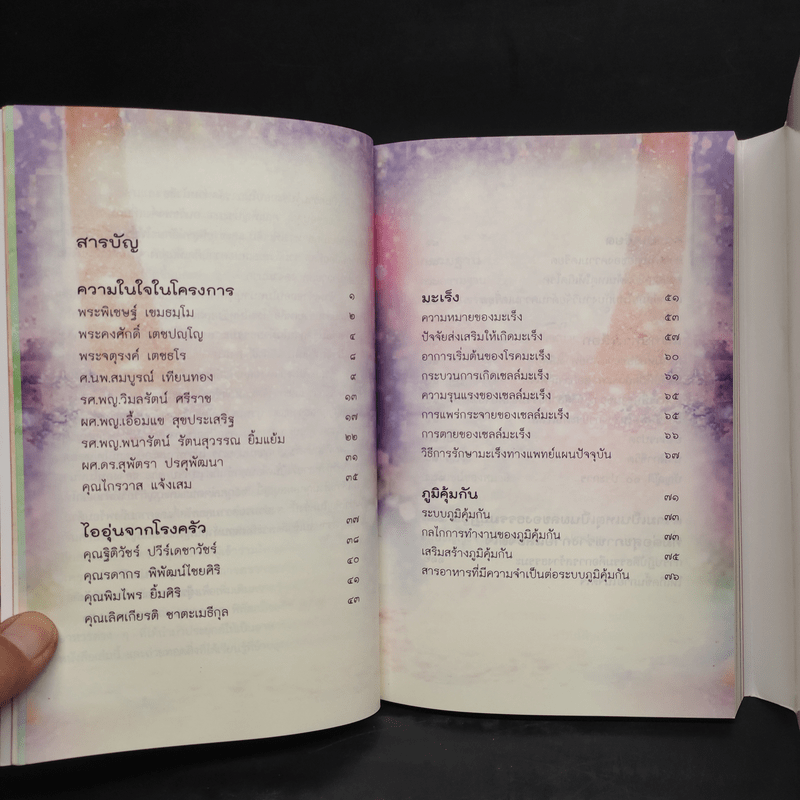 สารบัญ
ความในใจในโครงการ ๑
พระพิเชษฐ์ เขมธมฺโม ๒
พระคงศักดิ์ เตชปญฺโญ ๔
พระจตุรงค์ เตชธโร ๘
ศ.นพ.สมบูรณ์ เทียนทอง ๙
รศ.พญ.วิมลรัตน์ ศรีราช ๑๓
ผศ.พญ.เอื้อมแข สุขประเสริฐ ๑๗
รศ.พญ.พนารัตน์ รัตนสุวรรณ ยิ้มแย้ม ๒๒
ผศ.ดร.สุพัตรา ปรศุพัฒนา ๓๑
คุณไกรวาส แจ้งเสม ๓๕
ไออุ่นจากโรงครัว ๓๗
คุณฐิติวัชร์ ปวีร์เดชาวัชร์ ๓๘
คุณรดากร พิพัฒน์ไชยศิริ ๔๐
คุณพิมไพร ยิ้มศิริ ๔๑
คุณเลิศเกียรติ ชาตะเมธีกุล ๔๓
มะเร็ง ๕๑
ความหมายของมะเร็ง ๕๓
ปัจจัยส่งเสริมให้เกิดมะเร็ง ๕๗
อาการเริ่มต้นของโรคมะเร็ง ๖๐
กระบวนการเกิดเซลล์มะเร็ง ๖๑
ความรุนแรงของเซลล์มะเร็ง ๖๕
การแพร่กระจายของเซลล์มะเร็ง ๖๕
การตายของเซลล์มะเร็ง ๖๖
วิธีการรักษามะเร็งทางแพทย์แผนปัจจุบัน ๖๗
ภูมิคุ้มกัน ๗๑
ระบบภูมิคุ้มกัน ๗๓
กลไกการทำงานของภูมิคุ้มกัน ๗๓
เสริมสร้างภูมิคุ้มกัน ๗๕
สารอาหารที่มีความจำเป็นต่อระบบภูมิคุ้มกัน ๗๖